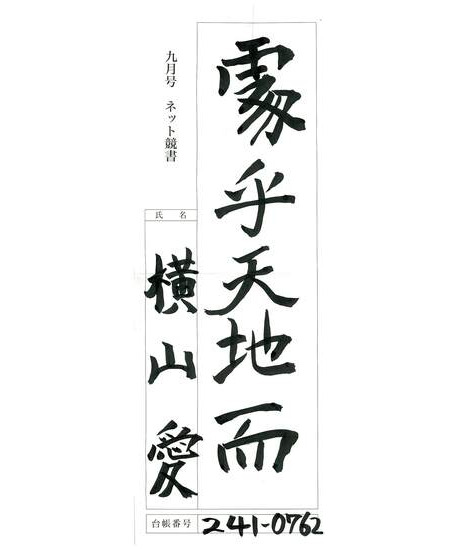 處乎天地而
九月号 ネット競書
氏名
横山愛
台帳番号 241-0762